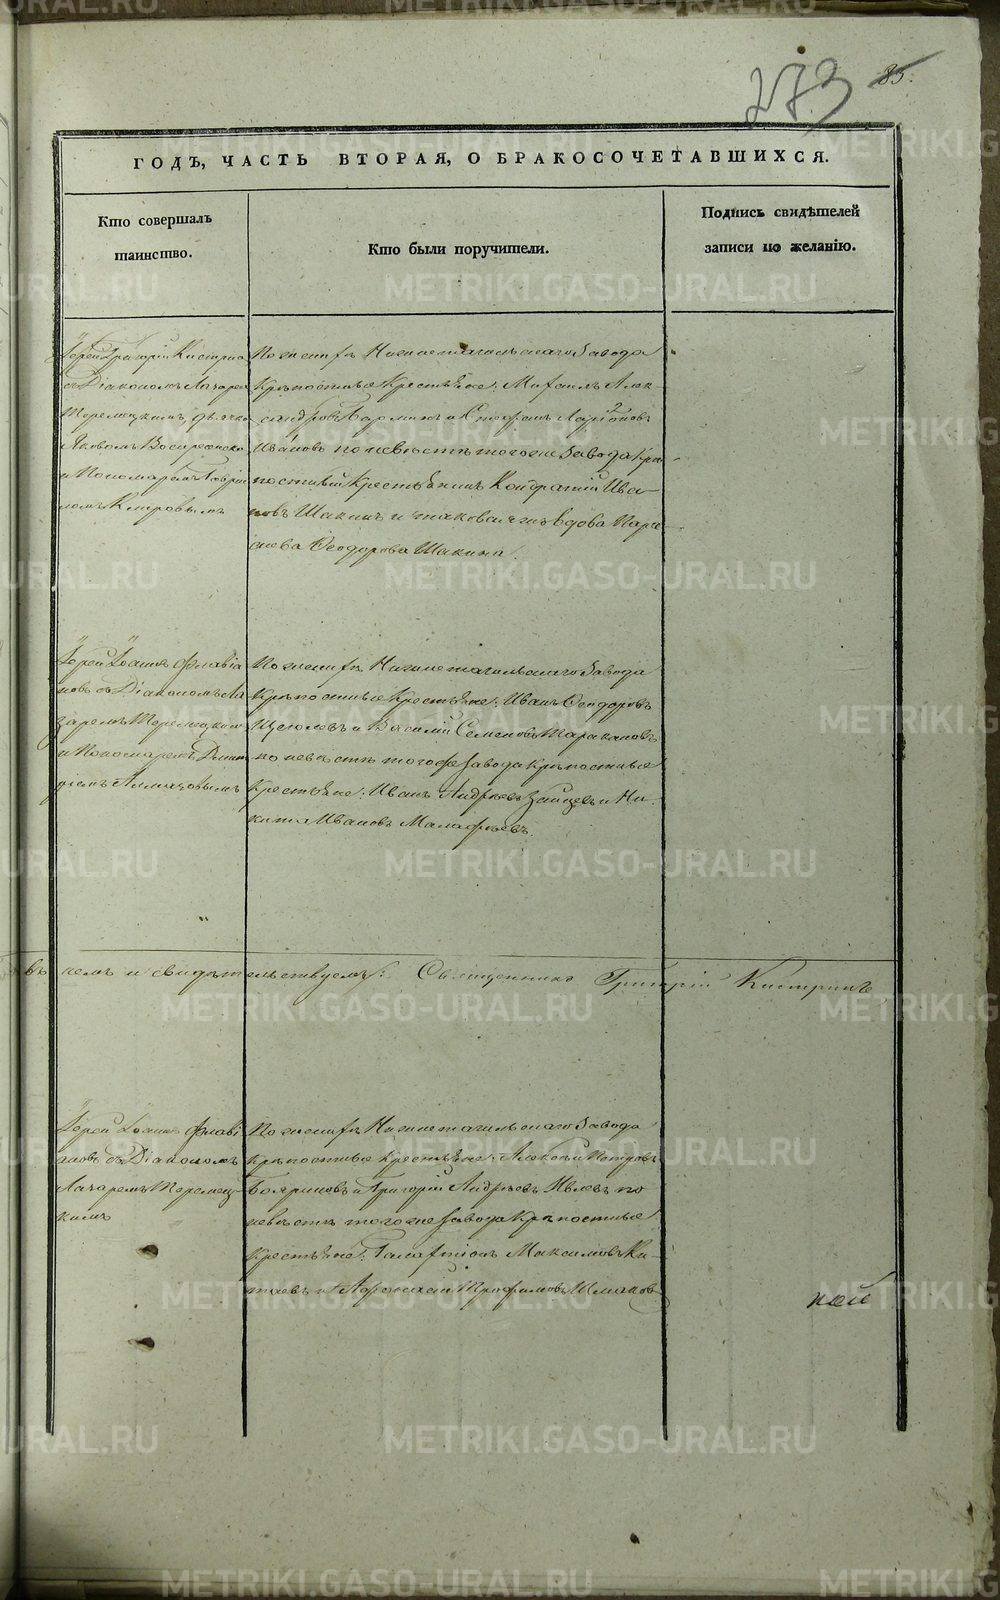 273
85.
ГОДЪ, ЧАСТЬ ВТОРАЯ, О БРАКОСОЧЕТАВШИХСЯ.
Кто совершалъ
таинство.
Кто были поручители.
Подпись свидѣтелей
записи по желанію.
Іерей Григорій Кистринъ
съ Діакономъ Лазаремъ
Теремецкимъ, дьячко
Яковомъ Воскресенско
и Пономаремъ Гаврі
ломъ Кипровымъ
По женихѣ Нижнетагильскаго Завода
Крѣпостные Крестьяне: Михаилъ Алек-
сандровъ и Стефанъ Ларіоновъ
Ивановъ по невѣстѣ тогоже Завода Крѣ-
постный Крестьянинъ Кондратій Ива-
новъ Шакинъ и таковая жъ вдова Парас-
кева Ѳеодорова Шакина.
Іерей Іоаннъ Флавіа
новъ съ Діакономъ Ла
заремъ Теремецкимъ
и Пономаремъ Димит
ріемъ
По женихѣ Нижнетагильскаго Завода
Крѣпостные Крестьяне: Иванъ Ѳеодоровъ
и Василій Семеновъ Таракановъ
по невѣстѣ тогоже Завода Крѣпостные
Крестьяне: Иванъ Андреевъ Зайцевъ и Ни-
кита Ивановъ Малафѣевъ.
въ чемъ и свидѣтельствуемъ: Священникъ Григорій Кистринъ
Іерей Іоаннъ Флаві
ановъ съ Діакономъ
Лазаремъ Теремец-
кимъ
По женихѣ Нижнетагильскаго Завода
Крѣпостные Крестьяне: Алексѣй Петровъ
Бояриновъ и Григорій Андреевъ по
невѣстѣ тогоже Завода Крѣпостные
Крестьяне: Галафтіонъ Максимовъ Ки-
таевъ и Афанасій Трофимовъ
ной
METRIKI.GASO-URAL.RU